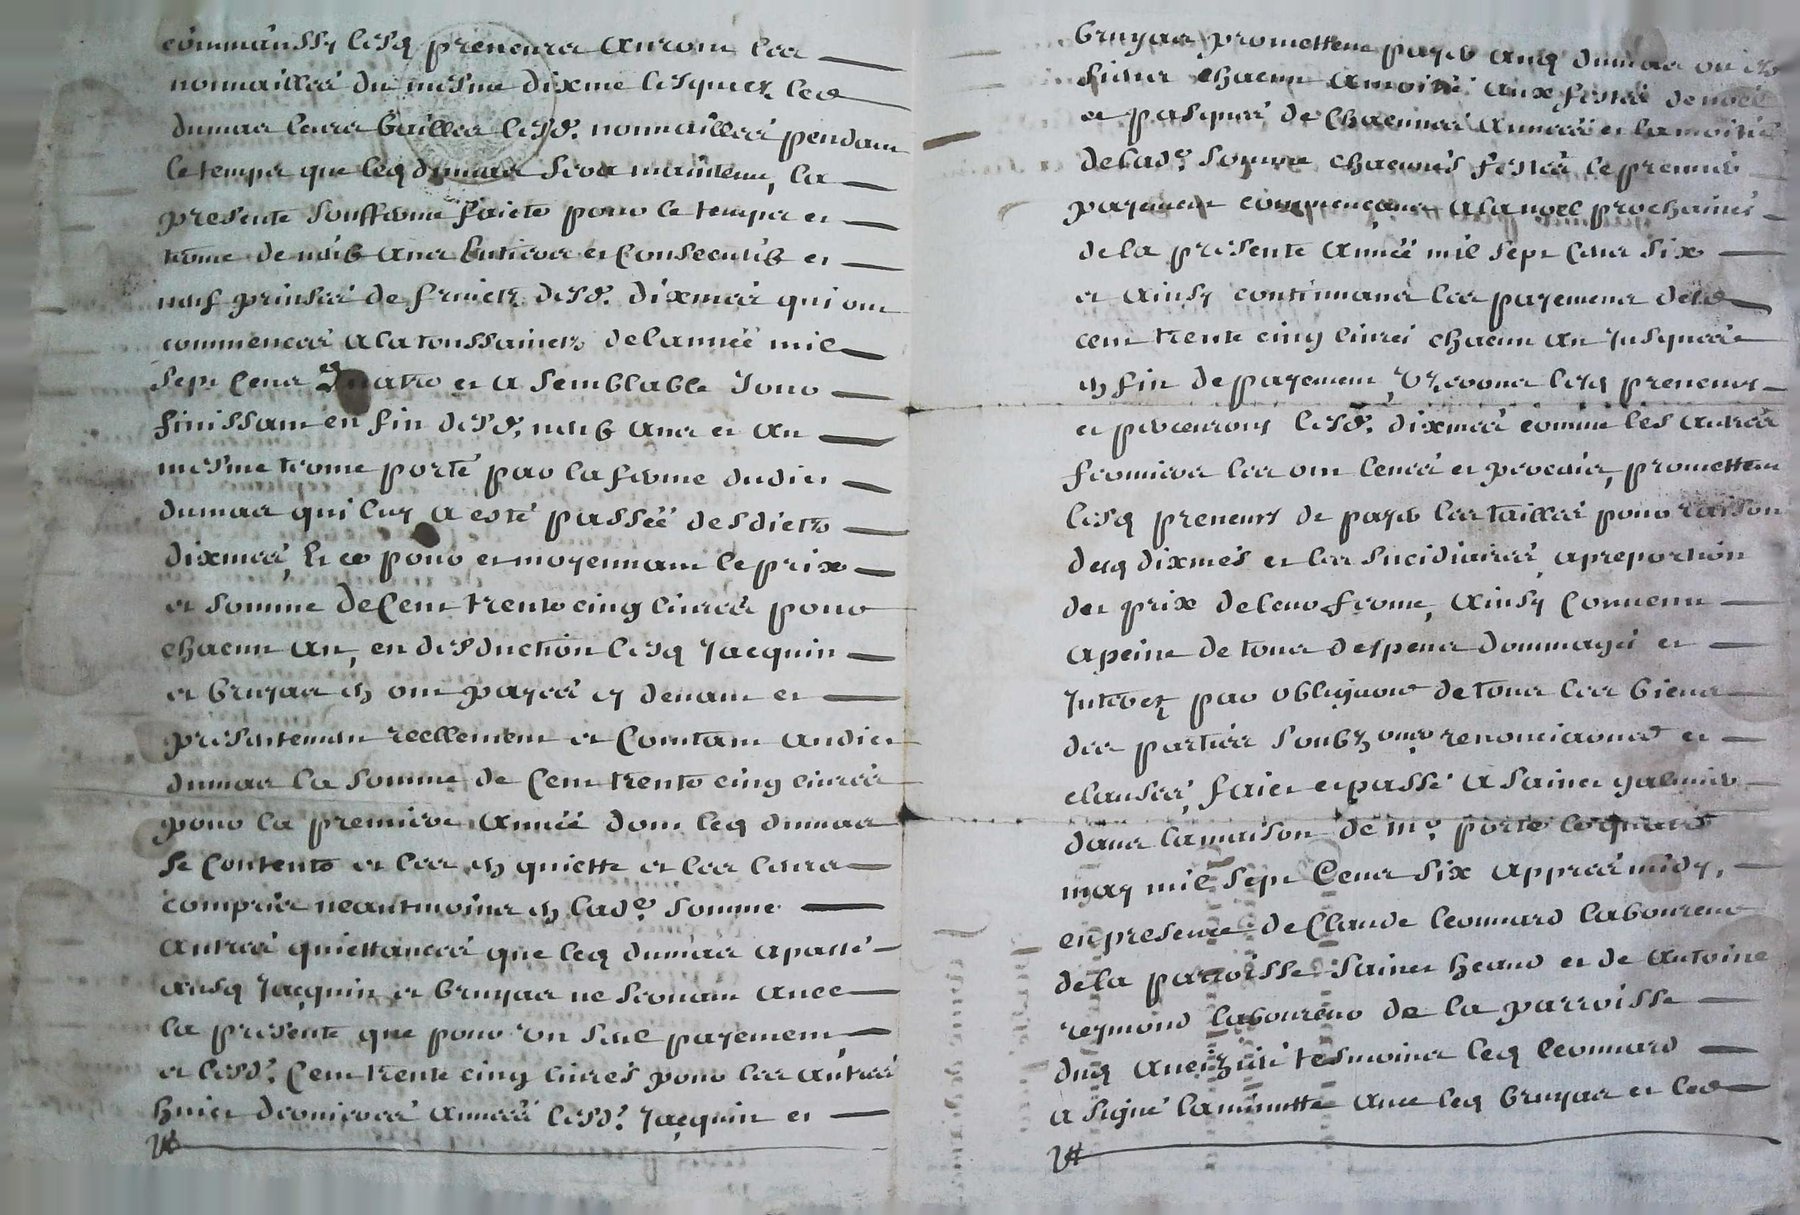 comm aussy lesq preneurs auront les
nouvailles du mesme dixme lesquelz led
dumas leurs baillera lesd. nouvailles pendant
le temps que leq dumas sera maintenu, la
presente soufferme faicte pour le temps et
terme de neufz ans entiers et consecutifz et
neuf prinses de fruictz desd. dixmes qui ont
commencees a la toussainctz de lannée mil
sept cens quatre et a semblable jour
finissant en fin desd. neufz ans et au
mesme terme porté par la ferme dudict
dumas qui luy a esté passée desdicts
dixmes, et ce pour et moyennant le prix
et somme de cent trente cinq livres pour
chacun an, en desduction lesq jacquin
et bruyas en ont payées cy devant et
presentement reellement et comtant audict
dumas la somme de cent trente cinq livres
pour la premiere année dont leq dumas
se contente et les en quiette et les leurs
comprise neantmoins en lad.e somme
autres quiettances que leq dumas a passé
ausq jacquin et bruyas ne servant avec
la presente que pour un seul payement,
et lesd. cent trente cinq livres pour les autres
huict dernieres années lesd. jacquin et
bruyas promettent payer auq dumas ou es
siens chacun a moitié aux festes de noel
et pasques de chacunes années et la moitié
de lad.e somme chacunes festes le premier
payement commenceant a la noel prochaines
de la presente année mil sept cens six
et ainsy continuant les payements desd
cent trente cinq livres chacun an jusques
en fin de payement, verront lesq preneurs
et percevront lesd. dixmes comme les autres
fermiers les ont levés et perceus, promettent
lesq preneurs de payer les tailles pour raison
desq dixmes et les sucidiaires, a preportion
du prix de leur ferme, ainsy convenu
a peine de tous despens dommages et
interetz par obligaons de tous les biens
des parties soubz renonciaons et
clauses, faict et passé a sainct galmier
dans la maison de m.e porte le quatre
may mil sept cens six appres midy,
en presence de claude leonnard laboureur
de la parroisse sainct heand et de antoine
reymond laboureur de la parroisse
duq aveizieu tesmoins leq leonnard
a signé la minutte avec leq bruyas et led